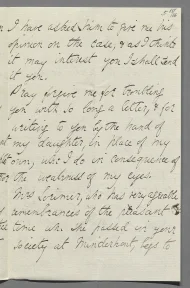 I have asked him to give me his
opinion on the case, & as I think
it may interest you I shall send
it you.
Pray forgive me for troubling
you with so long a letter, & for
writing to you by the hand of
my daughter, in place of my
own, wh. I do in consequence of
the weakness of my eyes.
Mrs Lorimer, who has very agreeable
remembrances of the pleasant
time wh. she passed in your
Society at Munderhunt, begs to